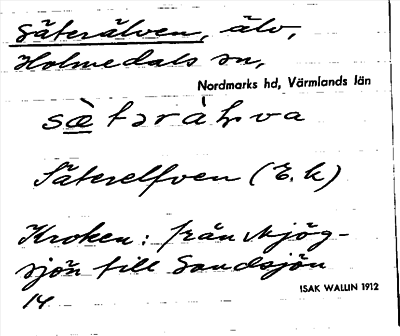 Säterälven, älv,
Holmedals sn,
Nordmarks hd, Värmlands län
sæ̀təràḷva
Säterelfven (E.k)
Kroken: från Mjög-
sjön till Sandsjön
14
ISAK WALLIN 1912